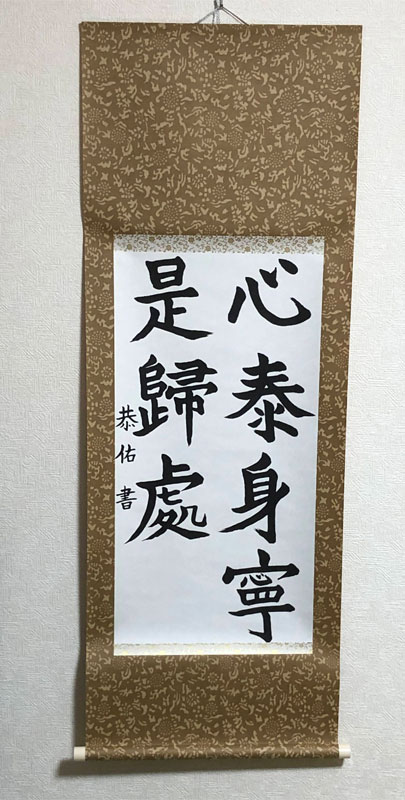 心泰身寧
是歸處
恭佑書